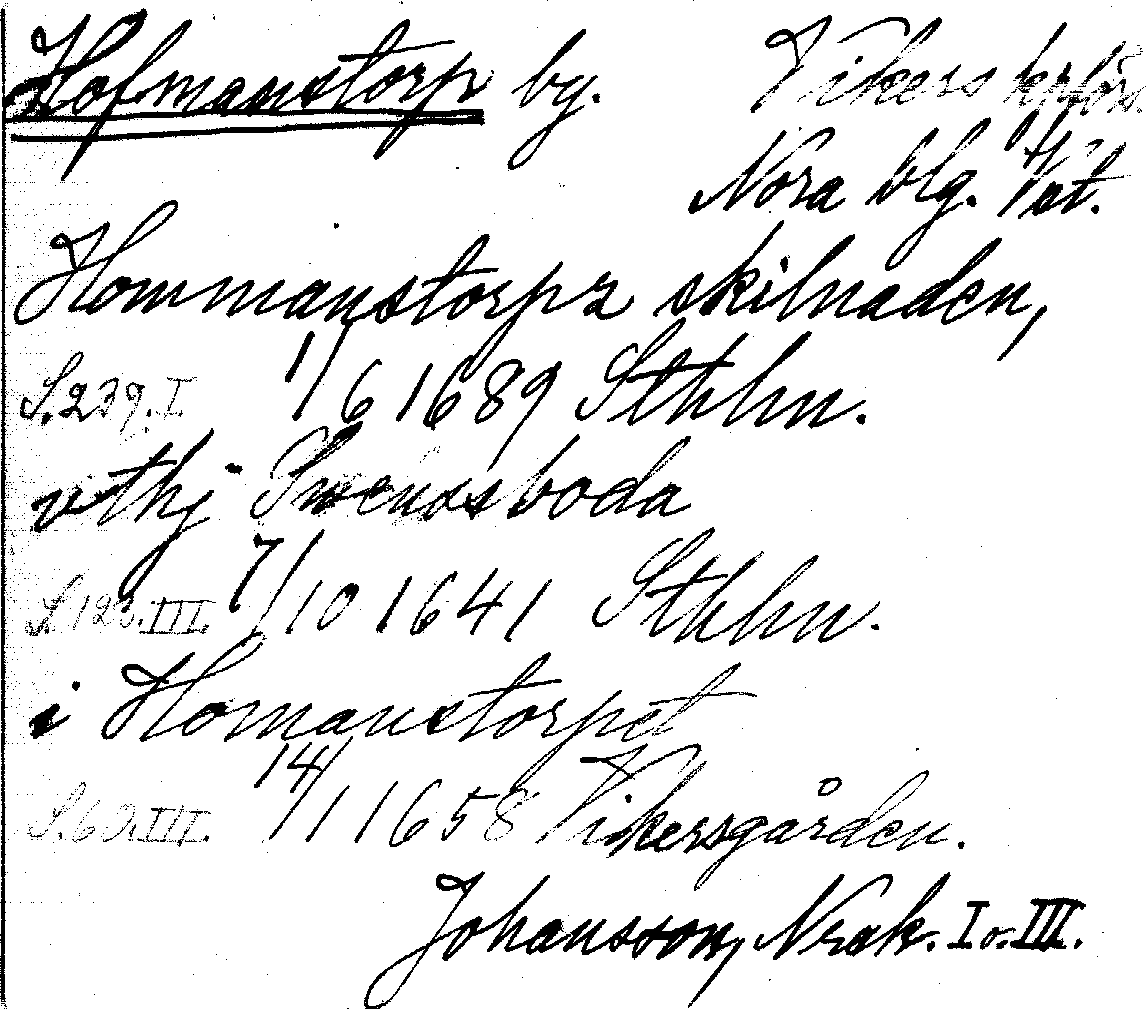 Hofmanstorp by. Vikers kpförs.
Nora blg. Vät.
Hommanstorpz skilnaden,
S. 239. I. 1/6 1689 Sthlm.
vthj Swensboda
S. 123. III. 7/10 1641 Sthlm.
i Homanstorpet
S. 63. III. 14/1 1658 Vikersgården.
Johansson, Nrak. I o. III.